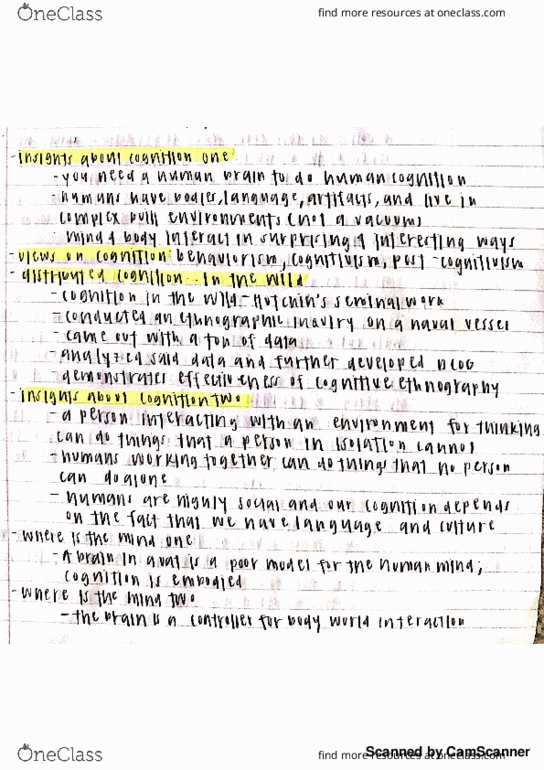 OneClass
find more resources at oneclass.com
- insights about cognition one
- you need a human brain to do human cognition
- humans have bodies, language, artifacts, and live in
complex built environments (not a vacuum)
- mind & body interact in surprising & interesting ways
- views on cognition behaviorism, cognitivism, post-cognitivism
- distributed cognition.. in the wild
- cognition in the wild - Hutchin's seminal work
- conducted an ethnographic inquiry on a naval vessel
- came out with a ton of data
- analyzed said data and further developed DCOG
- demonstrates effectiveness of cognitive ethnography
- insights about cognition two
- a person interacting with an environment for thinking
can do things that a person in isolation cannot
- humans working together can do things that no person
can do alone
- humans are highly social and our cognition depends
on the fact that we have language and culture
- where is the mind one
- A brain in a vat is a poor model for the human mind;
cognition is embodied
- where is the mind two
- the brain is a controller for body world interaction
OneClass
find more resources at oneclass.com
Scanned by CamScanner